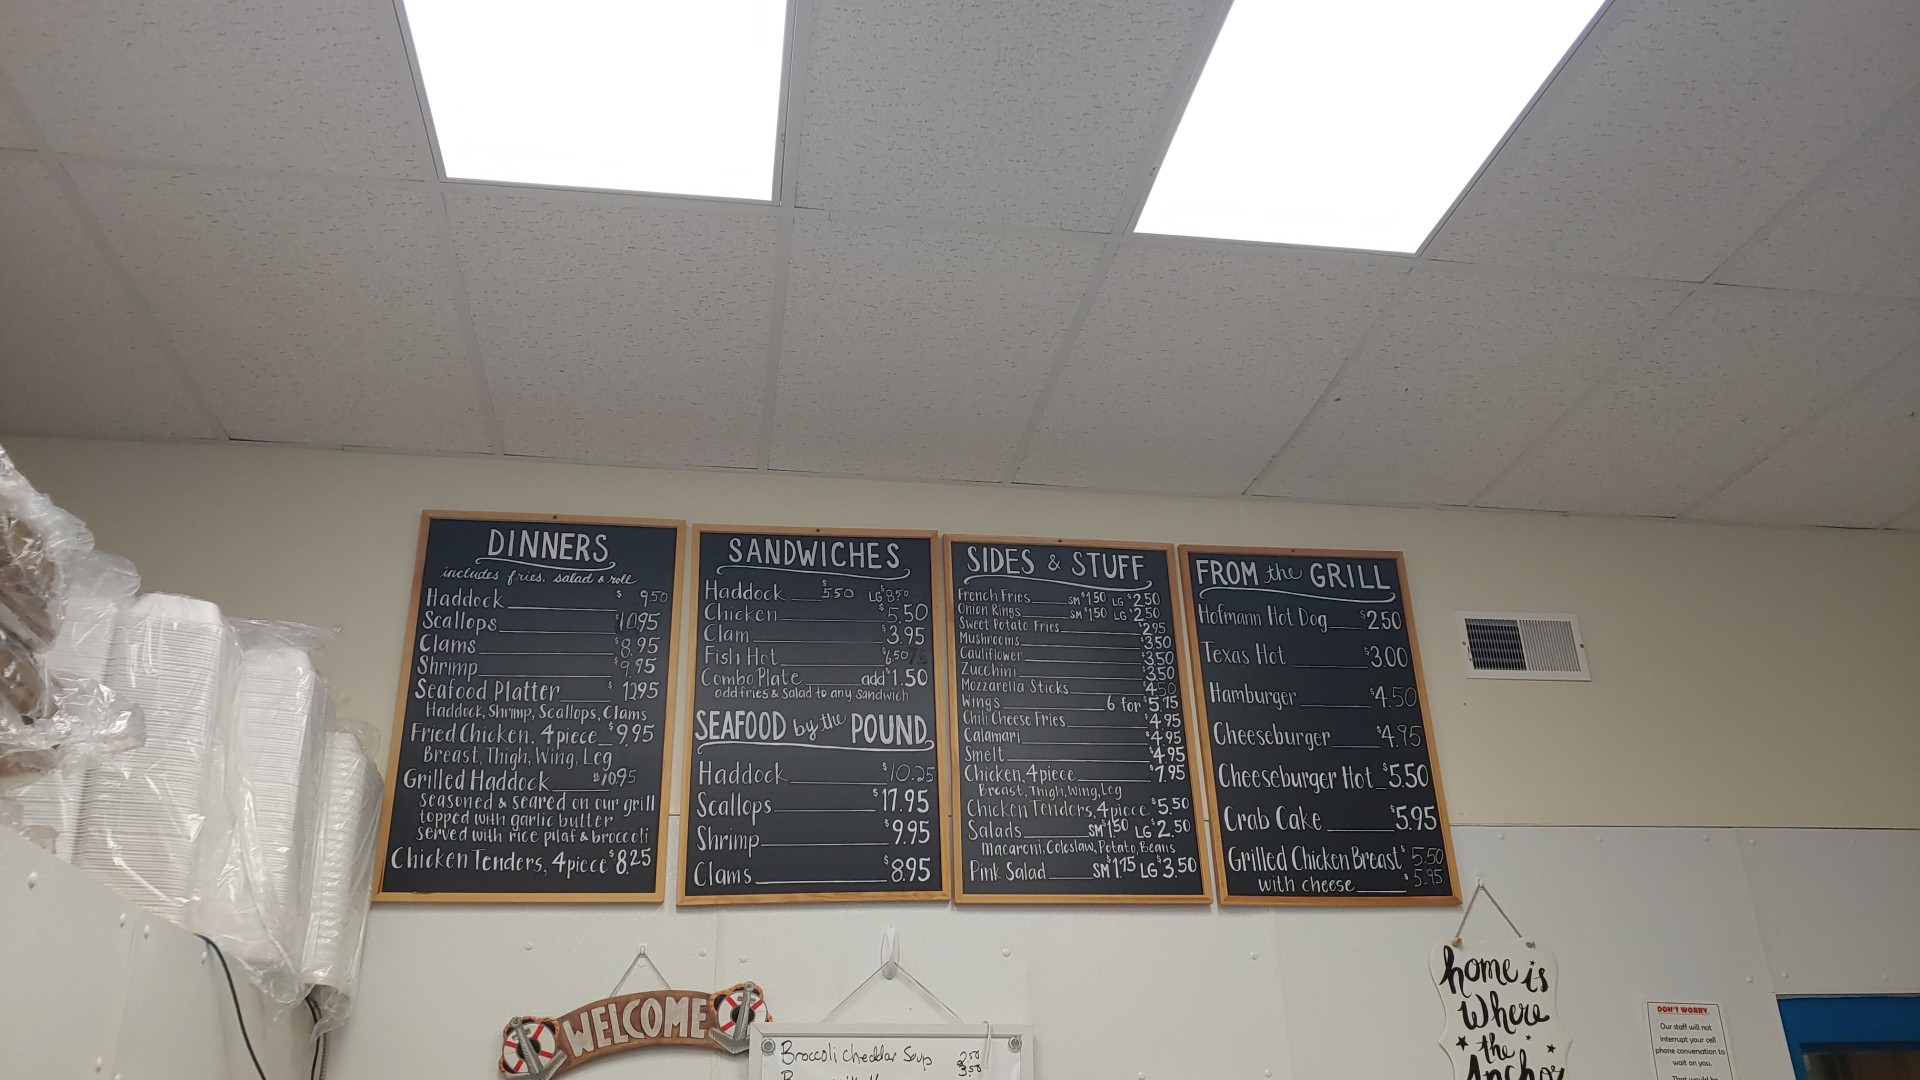 DINNERS
includes fries, salad & roll
Haddock $ 9.50
Scallops $10.95
Clams $8.95
Shrimp $9.95
Seafood Platter $ 12.95
Haddock, Shrimp, Scallops, Clams
Fried Chicken, 4 piece $9.95
Breast, Thigh, Wing, Leg
Grilled Haddock $10.95
seasoned & seared on our grill
topped with garlic butter
served with rice pilaf & broccoli
Chicken Tenders, 4 piece $8.25
SANDWICHES
Haddock $5.50 LG $8.50
Chicken $5.50
Clam $3.95
Fish Hot $6.50
Combo Plate add $1.50
add fries & salad to any sandwich
SEAFOOD by the POUND
Haddock $10.25
Scallops $17.95
Shrimp $9.95
Clams $8.95
SIDES & STUFF
French Fries SM $1.50 LG $2.50
Onion Rings SM $1.50 LG $2.50
Sweet Potato Fries $2.95
Mushrooms $3.50
Cauliflower $3.50
Zucchini $3.50
Mozzarella Sticks $4.50
Wings 6 for $5.75
Chili Cheese Fries $4.95
Calamari $4.95
Smelt $4.95
Chicken, 4 piece $7.95
Breast, Thigh, Wing, Leg
Chicken Tenders, 4 piece $5.50
Salads SM $1.50 LG $2.50
Macaroni, Coleslaw, Potato, Beans
Pink Salad SM $1.75 LG $3.50
FROM the GRILL
Hofmann Hot Dog $2.50
Texas Hot $3.00
Hamburger $4.50
Cheeseburger $4.95
Cheeseburger Hot $5.50
Crab Cake $5.95
Grilled Chicken Breast $5.50
with cheese $5.95
WELCOME
Broccoli cheddar Soup 2.50
3.50
home is
Where
the
Anchor
DON'T WORRY.
Our staff will not
interrupt your cell
phone conversation to
wait on you.
That would be